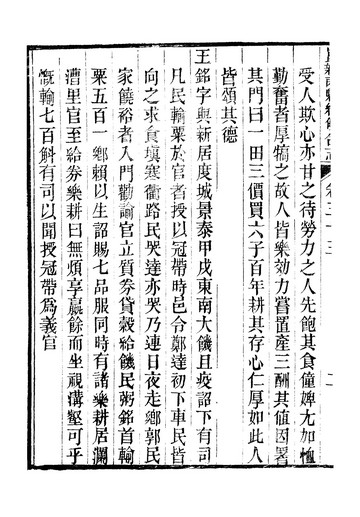 受人欺心亦甘之待勞力之人先飽其食僮婢尤加恤
勤奮者厚犒之故人皆樂効力嘗置產三酬其值因署
其門曰一田三價買六子百年耕其存心仁厚如此人
皆頌其德
王銘字與新居度城景泰甲戌東南大饑且疫詔下有司
凡民輸粟於官者授以冠帶時邑令鄭達初下車民皆
向之求食填寒衢路民哭達亦哭乃連日夜走鄉郭民
家饒裕者入門勸諭官立質券貸穀給饑民粥銘首輸
粟五百一鄉賴以生詔賜七品服同時有諸樂耕居瀾
漕里官至給券樂耕曰無煩享贏餘而坐視溝壑可乎
慨輸七百斛有司以聞授冠帶為義官